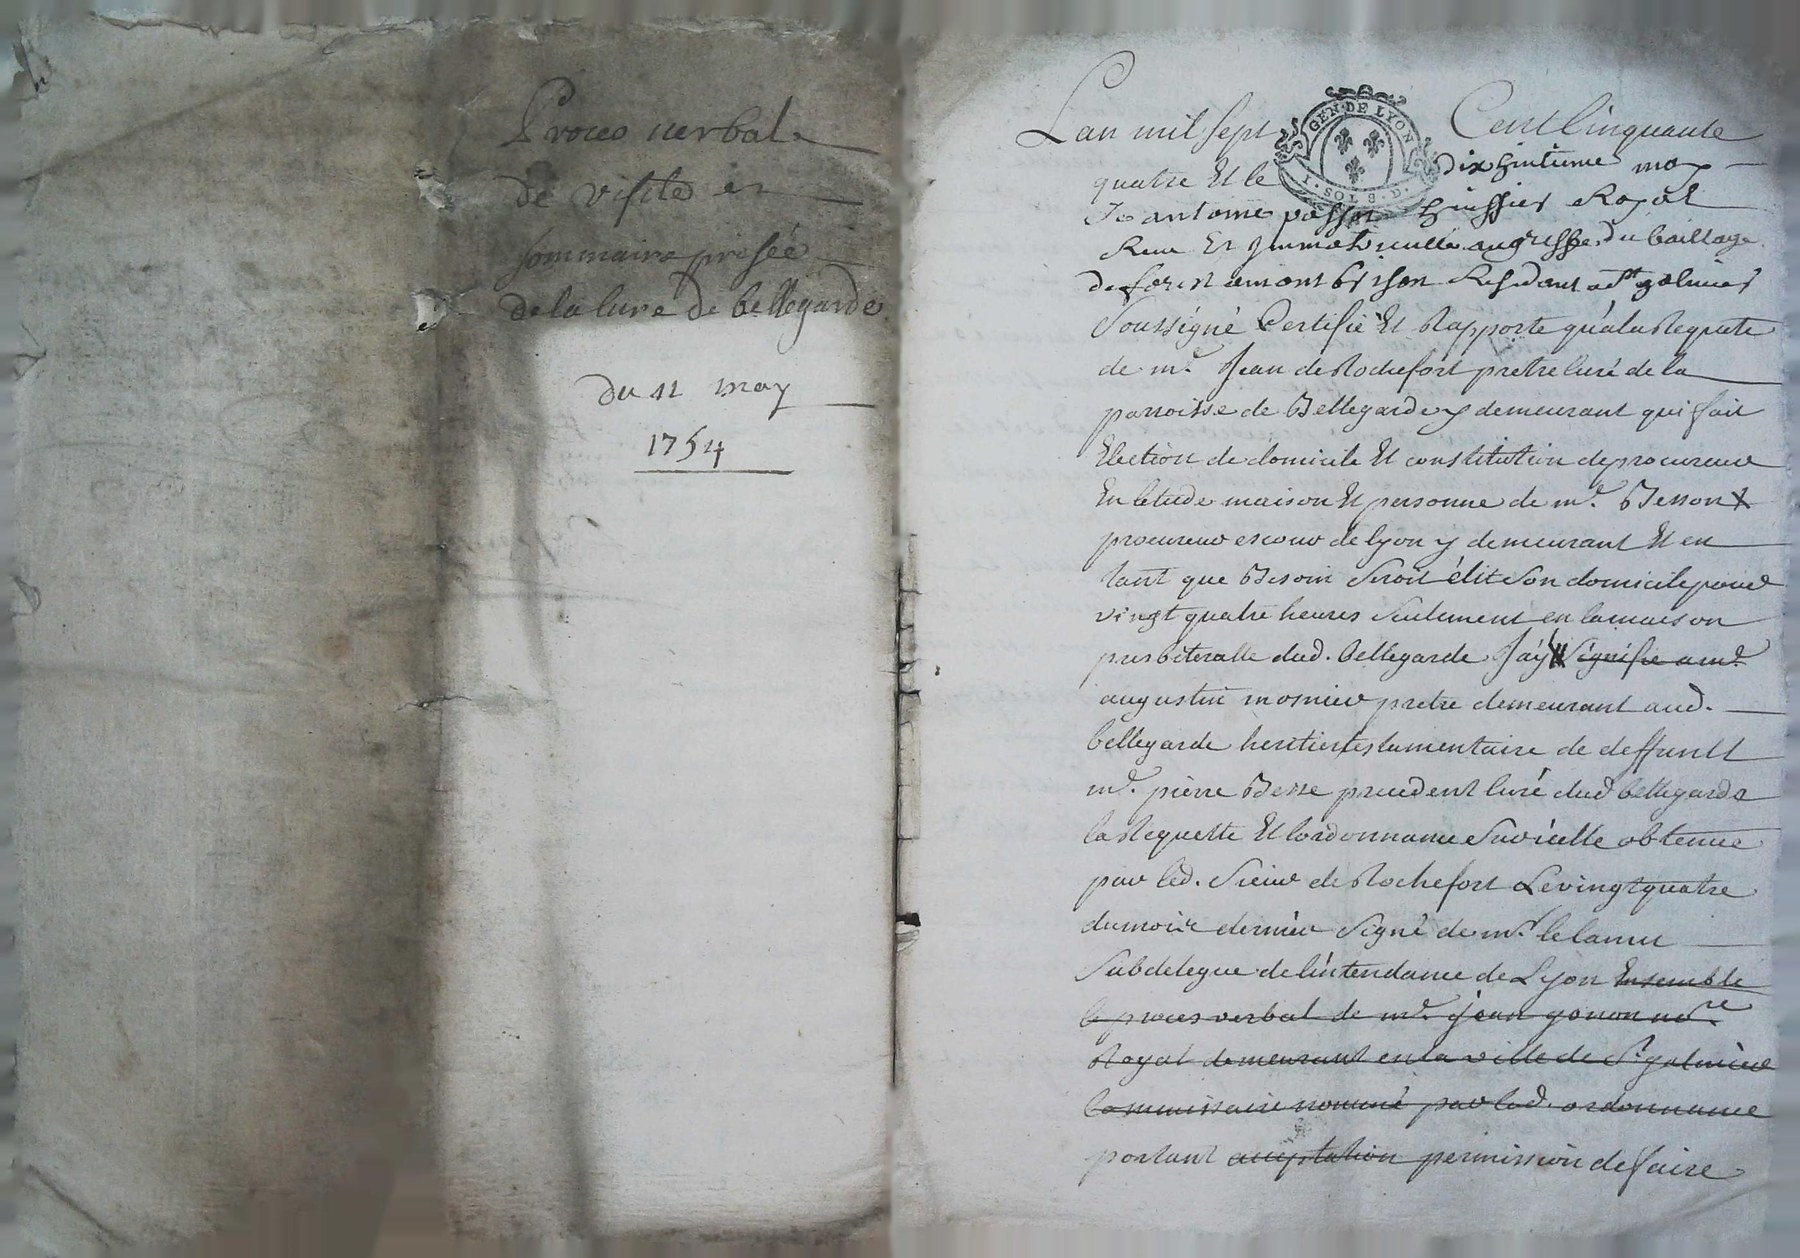 Proces verbal
De visite et
sommaire prisée
de la Cure De bellegarde
Du 11 may
1754
Lan mil sept Cent Cinquante
GEN·DE LYON
1·SOL 8 D.
quatre Et le dixhuitieme may
Je antoine huissier Royal
Receu Et Immatriculle au greffe du baillage
de forest a montbrison Residant a St galmier
Soussigné Certifie Et Rapporte qu'a la Requete
de mr. Jean de Rochefort pretre Curé de la
parroisse de Bellegarde y demeurant qui fait
Election de domicile Et constitution de procureur
En letude maison Et personne de mr. Besson
procureur es cour de lyon y demeurant Et en
tant que Besoin Seroit élit Son domicile pour
vingt quatre heures Seulement en la maison
presbiteralle dud. bellegarde Jay Signifie a mr.
augustin mosnier pretre demeurant aud.
bellegarde heritier testamentaire de deffunct
mr. pierre Besse precedent Curé dud bellegarde
la Requette Et lordonnance Sur icelle obtenue
par led. Sieur de Rochefort Le vingt quatre
du mois dernier Signé de mr.
Subdelegue de lintendance de Lyon Ensemble
le proces verbal de mr. jean gonon nore
Royal demeurant en la ville de St galmier
Commissaire nommé par lad. ordonnance
portant acceptation permission de faire